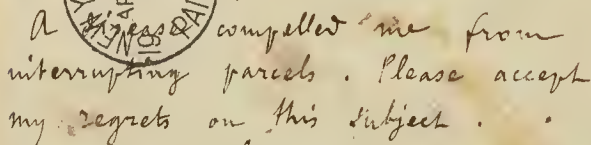 A disease compelled me from
interrupting parcels. Please accept
my regrets on this subject.